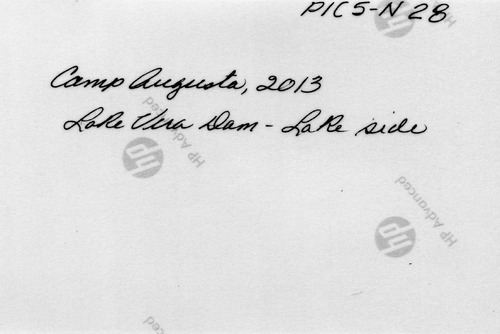 PIC5-N 28
Camp Augusta, 2013
Lake Vera Dam - Lake side
hp
HP Advanced
hp
HP Advanced
hp
Advanced